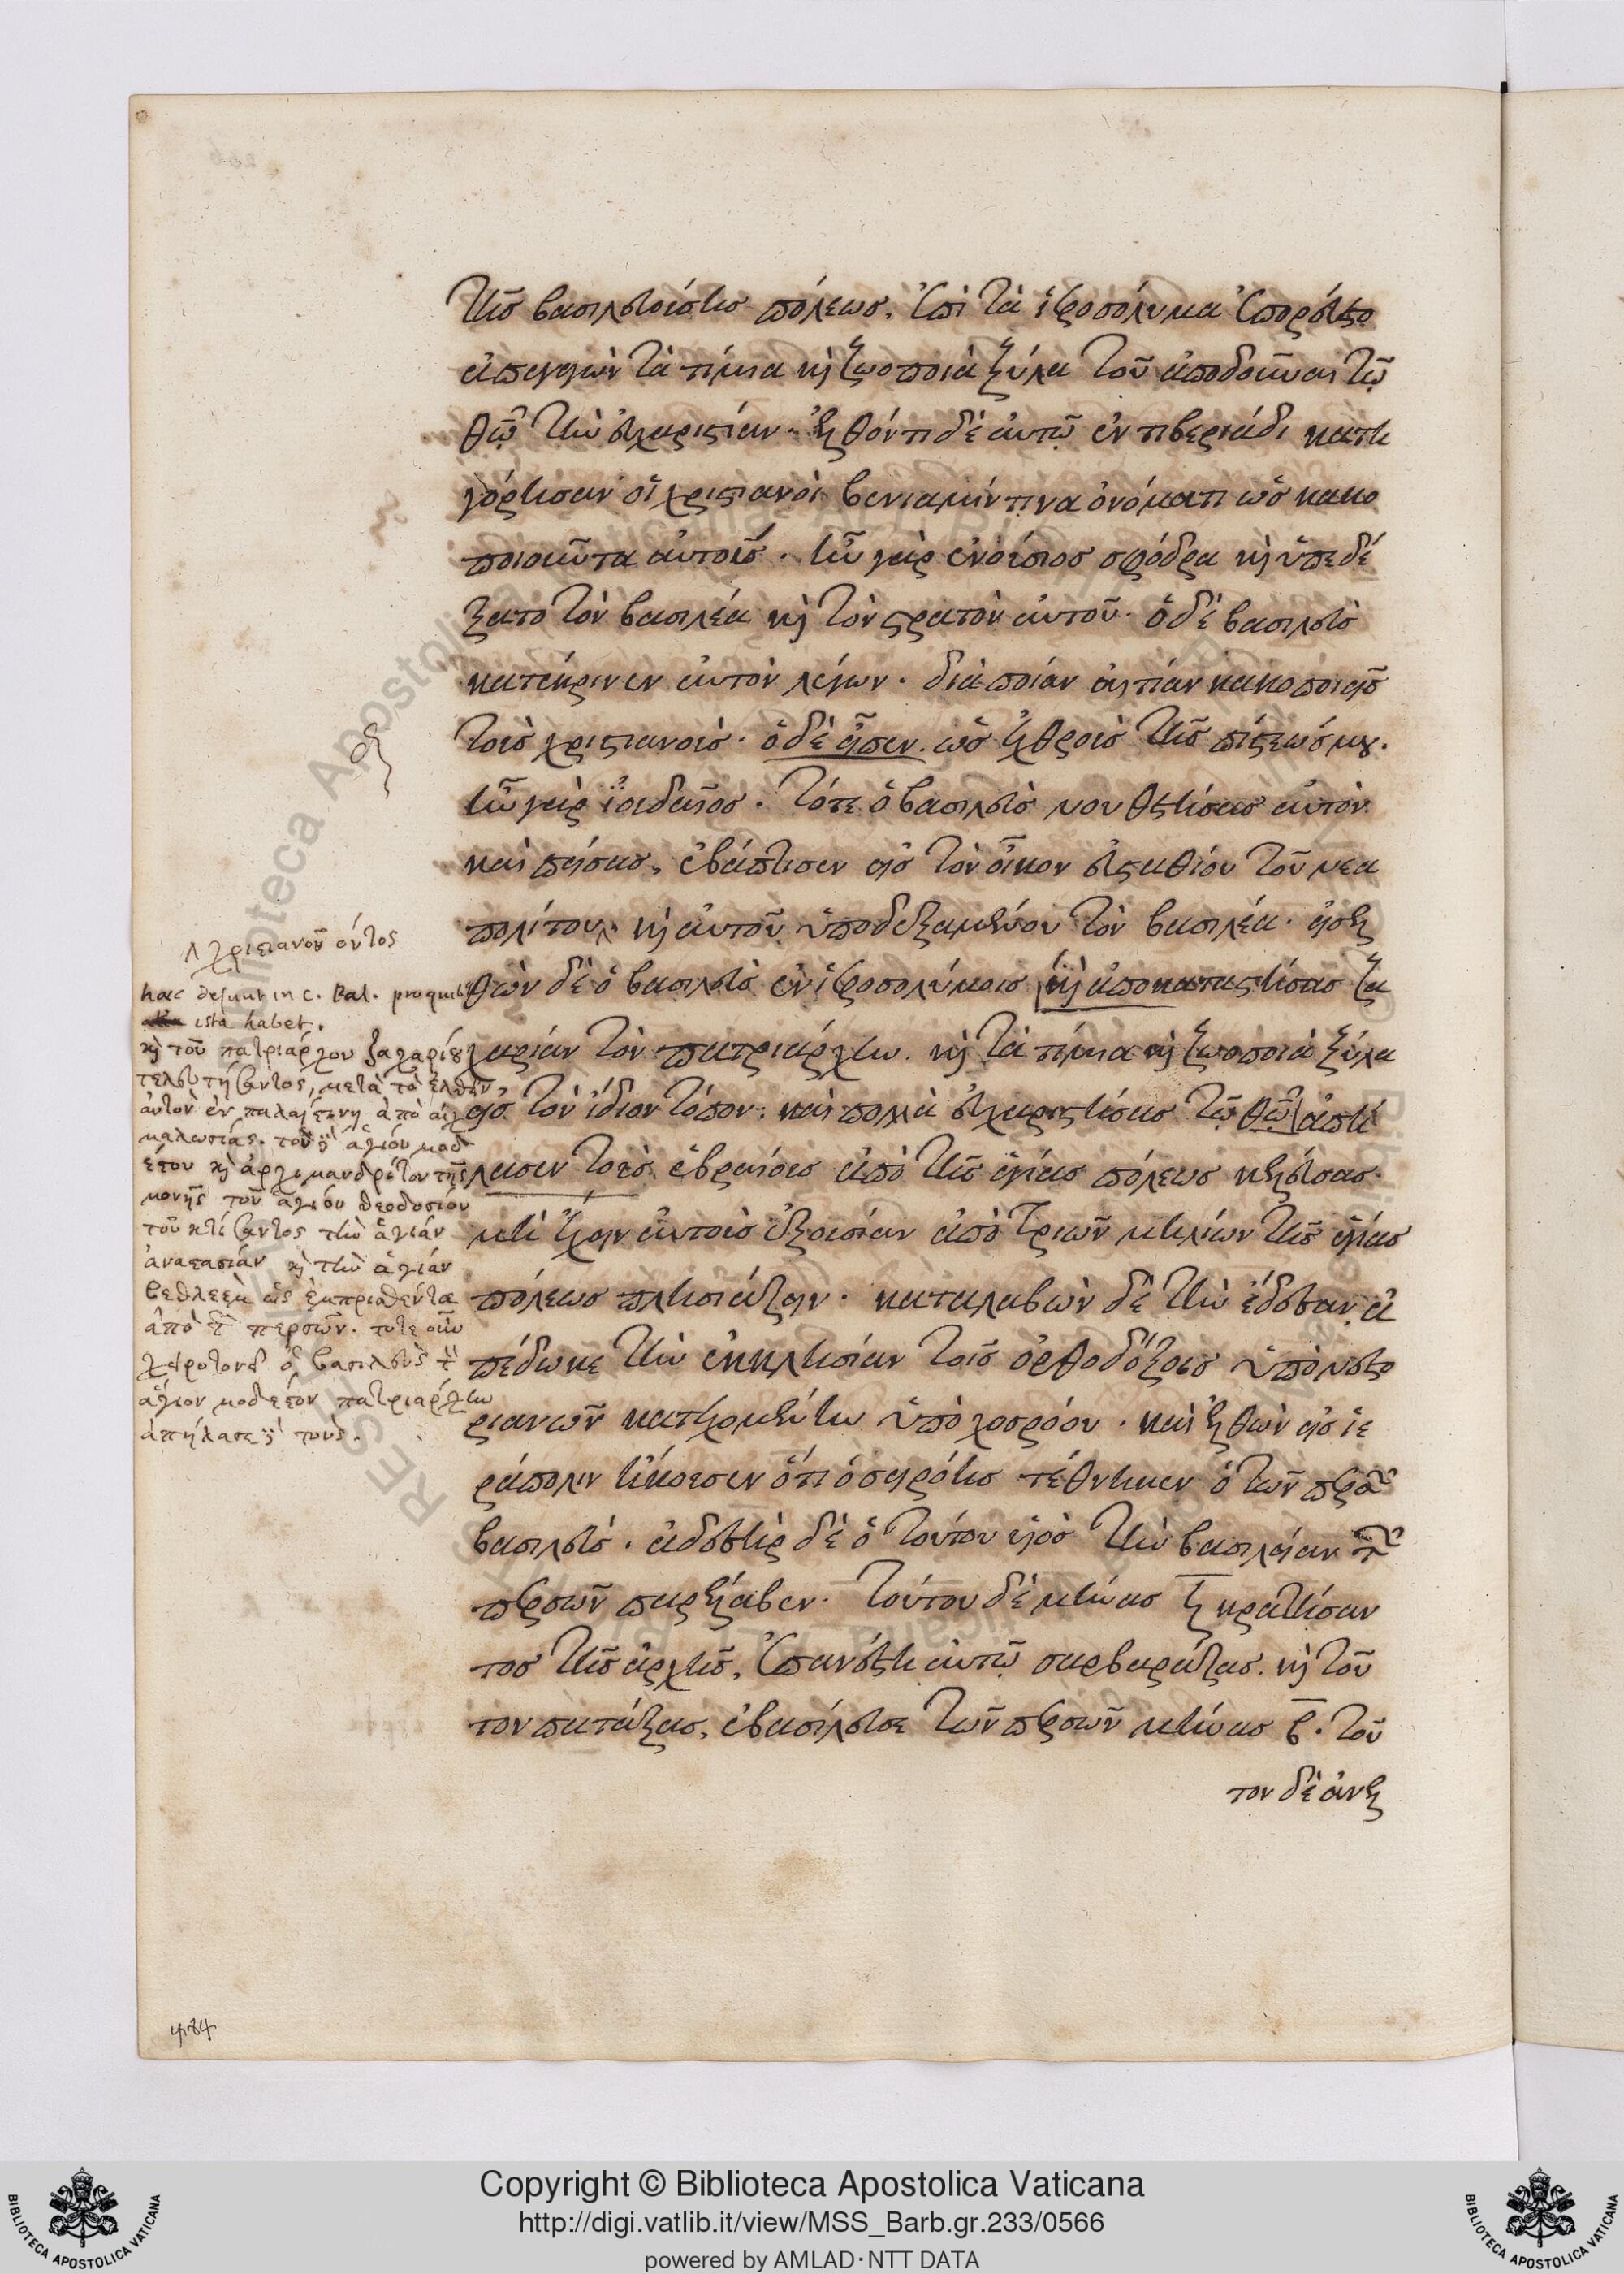 τῆς βασιλευούσης πόλεως, ἐπὶ τὰ ἱεροσόλυμα ἐπορεύετο
ἀπαγαγὼν τὰ τίμια καὶ ζωοποιὰ ξύλα τοῦ ἀποδοῦναι τῷ
θῷ τὴν εὐχαριστίαν. ἐλθόντι δὲ αὐτῷ ἐν τιβεριάδι κατη
γόρησαν οἱ χριστιανοὶ βενιαμίν τινα ὀνόματι ὡς κακο
ποιοῦντα αὐτούς. ἦν γὰρ εὐπορος σφόδρα καὶ ὑπεδέ
ξατο τὸν βασιλέα καὶ τὸν στρατὸν αὐτοῦ. ὁ δὲ βασιλεὺς
κατέκρινεν αὐτὸν λέγων. διὰ ποίαν αἰτίαν κακοποιεῖς
τοὺς χριστιανούς. ὁ δὲ εἶπεν. ὡς ἐχθροὺς τῆς πίστεώς μου.
ἦν γὰρ ἰουδαῖος. τότε ὁ βασιλεὺς νουθετήσας αὐτὸν
καὶ πείσας, ἐβάπτισεν εἰς τὸν οἶκον εὐσταθίου τοῦ νεα
πολίτου, καὶ αὐτοῦ ὑποδεξαμένου τὸν βασιλέα. εἰσελ
θὼν δὲ ὁ βασιλεὺς ἐν ἱεροσολύμοις καὶ ἀποκαταστήσας ζα
χαρίαν τὸν πατριάρχην. καὶ τὰ τίμια καὶ ζωοποιὰ ξύλα
εἰς τὸν ἴδιον τόπον. καὶ πολλὰ εὐχαριστήσας τῷ θῷ ἀπή
λασεν τοὺς ἑβραίους ἀπὸ τῆς ἁγίας πόλεως κελεύσας
μὴ ἔχειν αὐτοὺς ἐξουσίαν ἀπὸ τριῶν μιλίων τῆς ἁγίας
πόλεως πλησιάζειν. καταλαβὼν δὲ τὴν ἔδεσαν, ἀ
πέδωκε τὴν ἐκκλησίαν τοῖς ὀρθοδόξοις ὑπὸ νεστο
ριανῶν κατεχομένην ὑπὸ χοσρόου. καὶ ἐλθὼν εἰς ἱε
ράπολιν ἤκουσεν ὅτι ὁ σιρόης τέθνηκεν ὁ τῶν περσῶν
βασιλεύς. ἀδεσὴρ δὲ ὁ τούτου υἱὸς τὴν βασιλείαν τῶν
περσῶν παρέλαβεν. τούτου δὲ μῆνας ζ κρατήσαν
τος τῆς ἀρχῆς, ἐπανέστη αὐτῷ σαρβαράζας. καὶ τοῦ
τον πατάξας, ἐβασίλευσε τῶν περσῶν μῆνας β. τοῦ
τον δὲ ἀνελ
χριστιανοῦ ὄντος
haec desunt in c. Pal. pro quibus
ista habet.
καὶ τοῦ πατριάρχου ζαχαρίου
τελευτήσαντος, μετὰ τὸ ἐλθεῖν
αὐτὸν ἐν παλαιστίνῃ ἀπὸ αἰχ
μαλωσίας. τοῦ δὲ ἁγίου μοδ
έστου καὶ ἀρχιμανδρίτου τῆς
μονῆς τοῦ ἁγίου θεοδοσίου
τοῦ κτίσαντος τὴν ἁγίαν
ἀνάστασιν καὶ τὴν ἁγίαν
βεθλεὲμ ὡς ἐμπρισθέντα
ἀπὸ τῶν περσῶν. τότε οὖν
χειροτονεῖ ὁ βασιλεὺς τὸν
ἅγιον μόδεστον πατριάρχην
ἀπήλασε δὲ τοὺς.
Copyright © Biblioteca Apostolica Vaticana
http://digi.vatlib.it/view/MSS_Barb.gr.233/0566
powered by AMLAD·NTT DATA
BIBLIOTECA APOSTOLICA VATICANA
BIBLIOTECA APOSTOLICA VATICANA